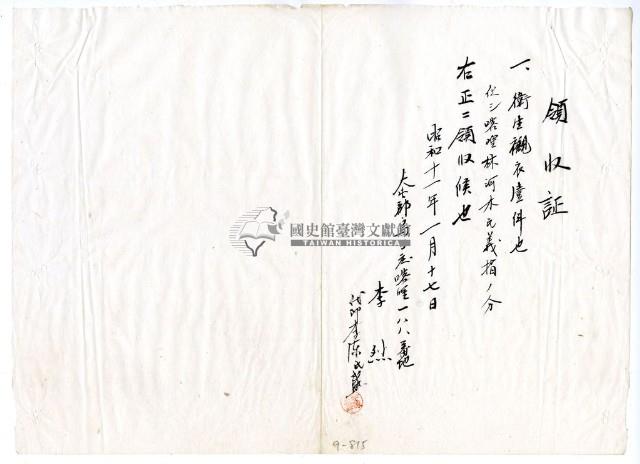 領収証
一、衛生襯衣壹件也
但シ喀哩林河水氏義捐ノ分
右正ニ領収候也
昭和十一年一月十七日
大屯郡烏日庄喀哩一八八番地
李烈
代印李陳氏
國史館臺灣文獻館
TAIWAN HISTORICA
9-875